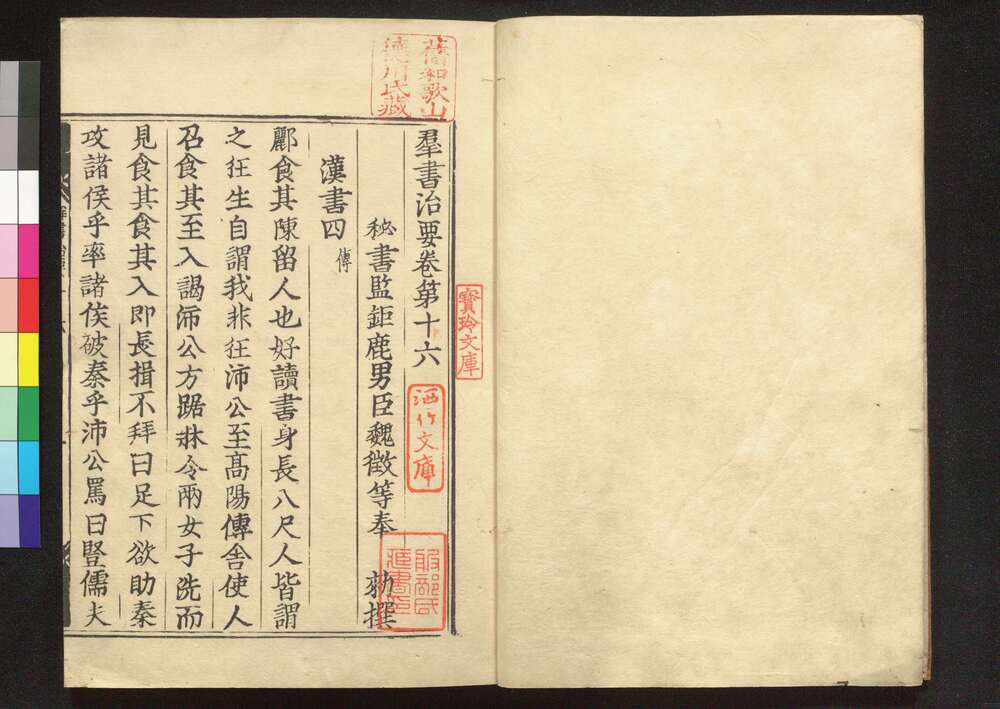 羣書治要卷第十六
秘書監鉅鹿男臣魏徵等奉 勑撰
漢書四 傳
酈食其陳留人也好讀書身長八尺人皆謂
之狂生自謂我非狂沛公至高陽傳舍使人
召食其至入謁沛公方踞牀令兩女子洗而
見食其食其入即長揖不拜曰足下欲助秦
攻諸侯乎率諸侯破秦乎沛公罵曰豎儒夫
舊和歌山
德川氏藏
寶玲文庫
洒竹文庫
服部氏